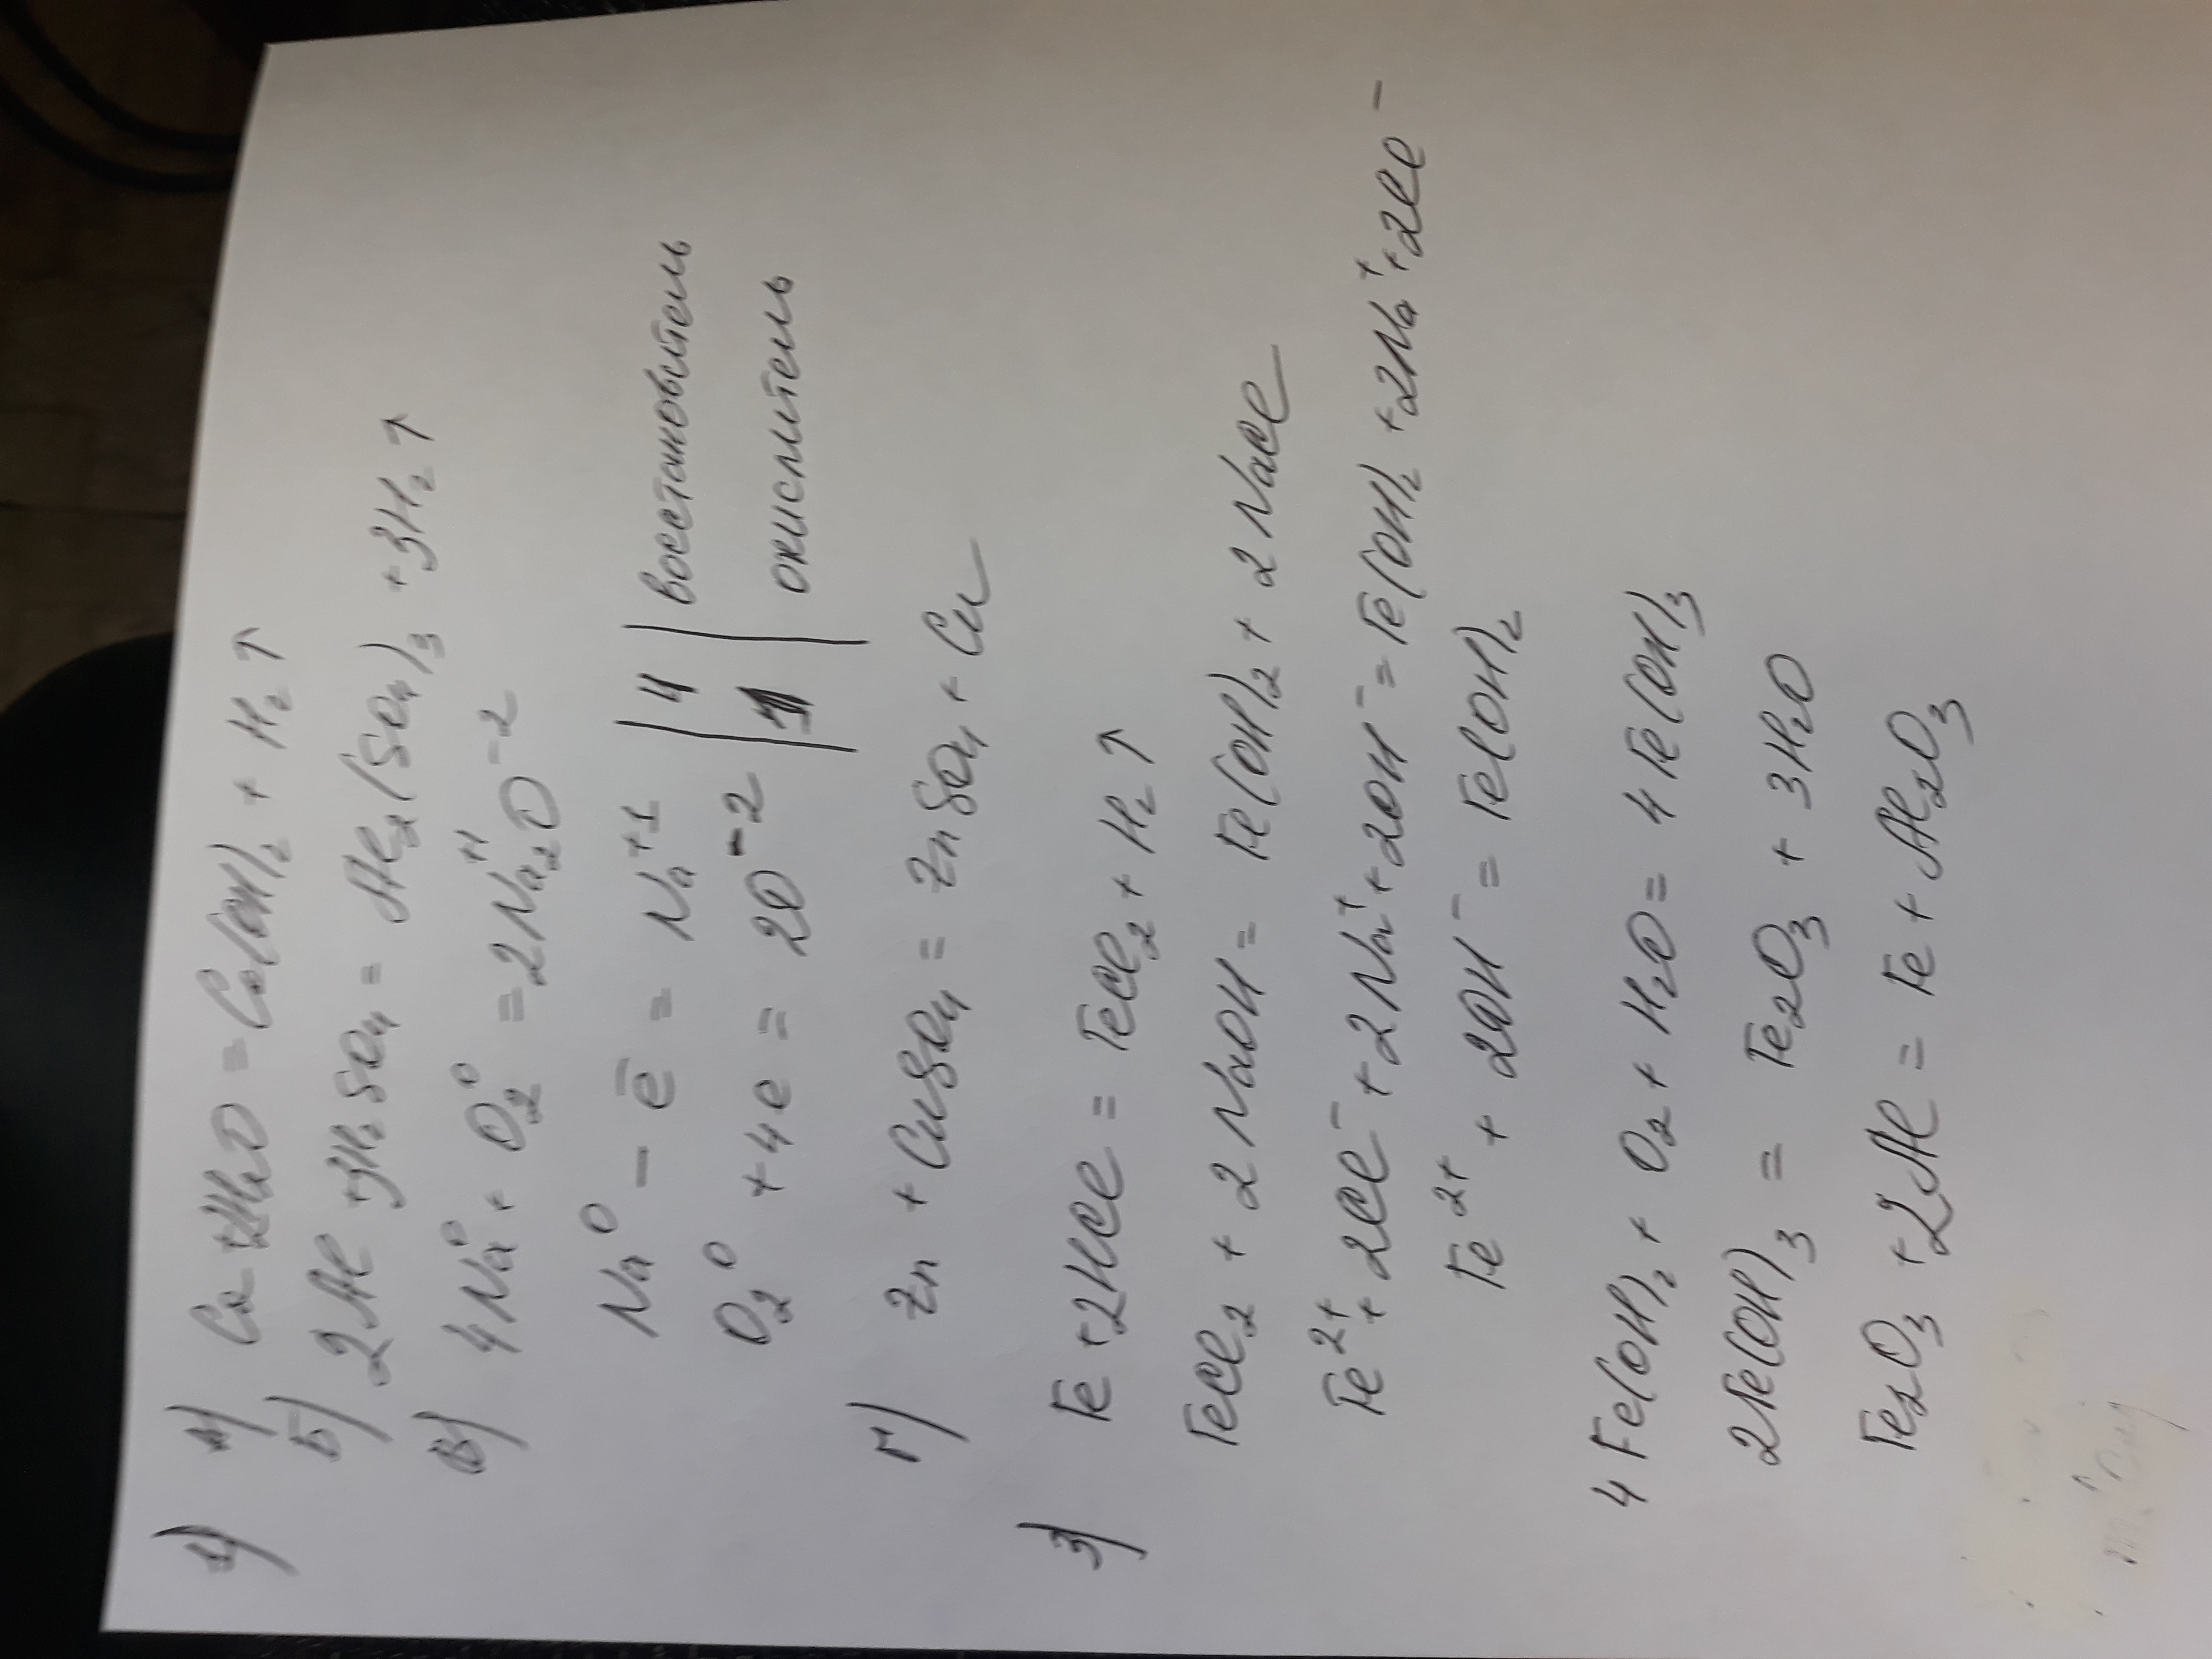 1) А) Ca + 2H₂O = Ca(OH)₂ + H₂ ↑
Б) 2Al + 3H₂SO₄ = Al₂(SO₄)₃ + 3H₂ ↑
В) 4Na⁰ + O₂⁰ = 2Na₂⁺¹O⁻²
Na⁰ − ē = Na⁺¹ | 4 | восстановитель
O₂⁰ + 4e = 2O⁻² | 1 | окислитель
Г) Zn + CuSO₄ = ZnSO₄ + Cu
3) Fe + 2HCl = FeCl₂ + H₂ ↑
FeCl₂ + 2NaOH = Fe(OH)₂ + 2NaCl
Fe²⁺ + 2Cl⁻ + 2Na⁺ + 2OH⁻ = Fe(OH)₂ + 2Na⁺ + 2Cl⁻
Fe²⁺ + 2OH⁻ = Fe(OH)₂
4Fe(OH)₂ + O₂ + H₂O = 4Fe(OH)₃
2Fe(OH)₃ = Fe₂O₃ + 3H₂O
Fe₂O₃ + 2Al = Fe + Al₂O₃